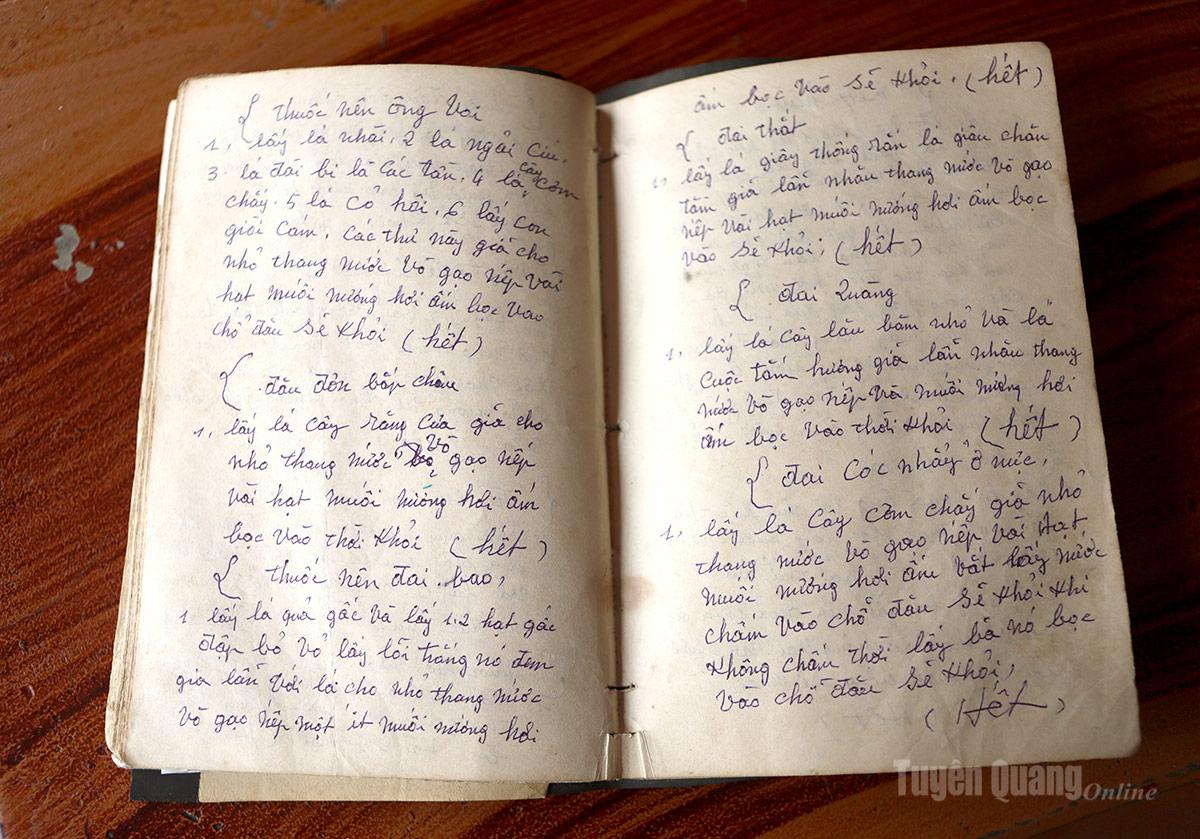 { thuốc nên ông Voi
1, lấy lá nhãi, 2 lá ngải cíu,
3. lá đãi bi là Các tần, 4 lá cây cơm
chấy. 5 lá cỏ hôi, 6 lấy con
giời Cám, Các thư này giã cho
nhỏ thang nước Vô gạo nếp vãi
hạt muối nướng hơi ấm bọc vao
chỗ đău Sẽ khỏi (hết)
{ đău đôn bắp chău
1, lấy lá Cây răng Cưa giã cho
nhỏ thang nước Vô gạo nếp
vãi hạt muối nướng hơi ấm
bọc Vào thời khỏi (hết)
{ thuốc nên đai bao,
1 lấy lá quả gấc và lấy 1.2 hạt gấc
đập bỏ vỏ lấy lõi trắng nó đem
giã lẫn với lá cho nhỏ thang nước
Vô gạo nếp một ít muối nướng hơi
ấm bọc vào Sẽ khỏi. (hết)
{ đai thắt
1, lấy lá giây thống rắn lá giâu chăn
tằm giã lẫn nhău thang nước Vô gạo
nếp Vãi hạt muối nướng hơi ấm bọc
vào Sẽ khỏi; (hết)
{ đai Quăng
1, lấy lá Cây lău băm nhỏ Và lá
Cuộc tăm hương giã lẫn nhău thang
nước Vô gạo nếp Và muối nướng hơi
ấm bọc Vào thời khỏi (hết)
{ đai Cóc nhẩy ở nực,
1, lấy lá Cây Cơm chấy giã nhỏ
thang nước Vô gạo nếp Vãi Hạt
muối nướng hơi ấm vắt lấy nước
chấm Vào chỗ đău Sẽ khỏi khi
không chấm thời lấy bã nó bọc
vào chỗ đău Sẽ khỏi,
(Hết)
Tuyên Quang Online